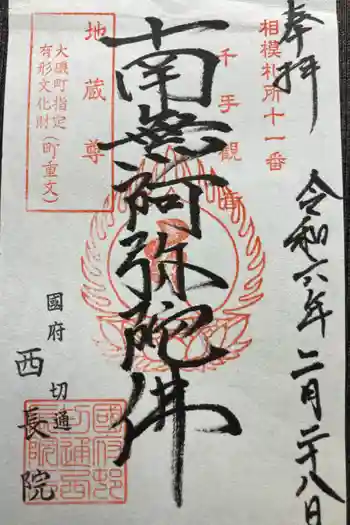 奉拝
令和六年二月二十八日
相模札所十一番
千手観音
南無阿弥陀佛
地蔵尊
大磯町指定
有形文化財(町重文)
國府
切通
西長院